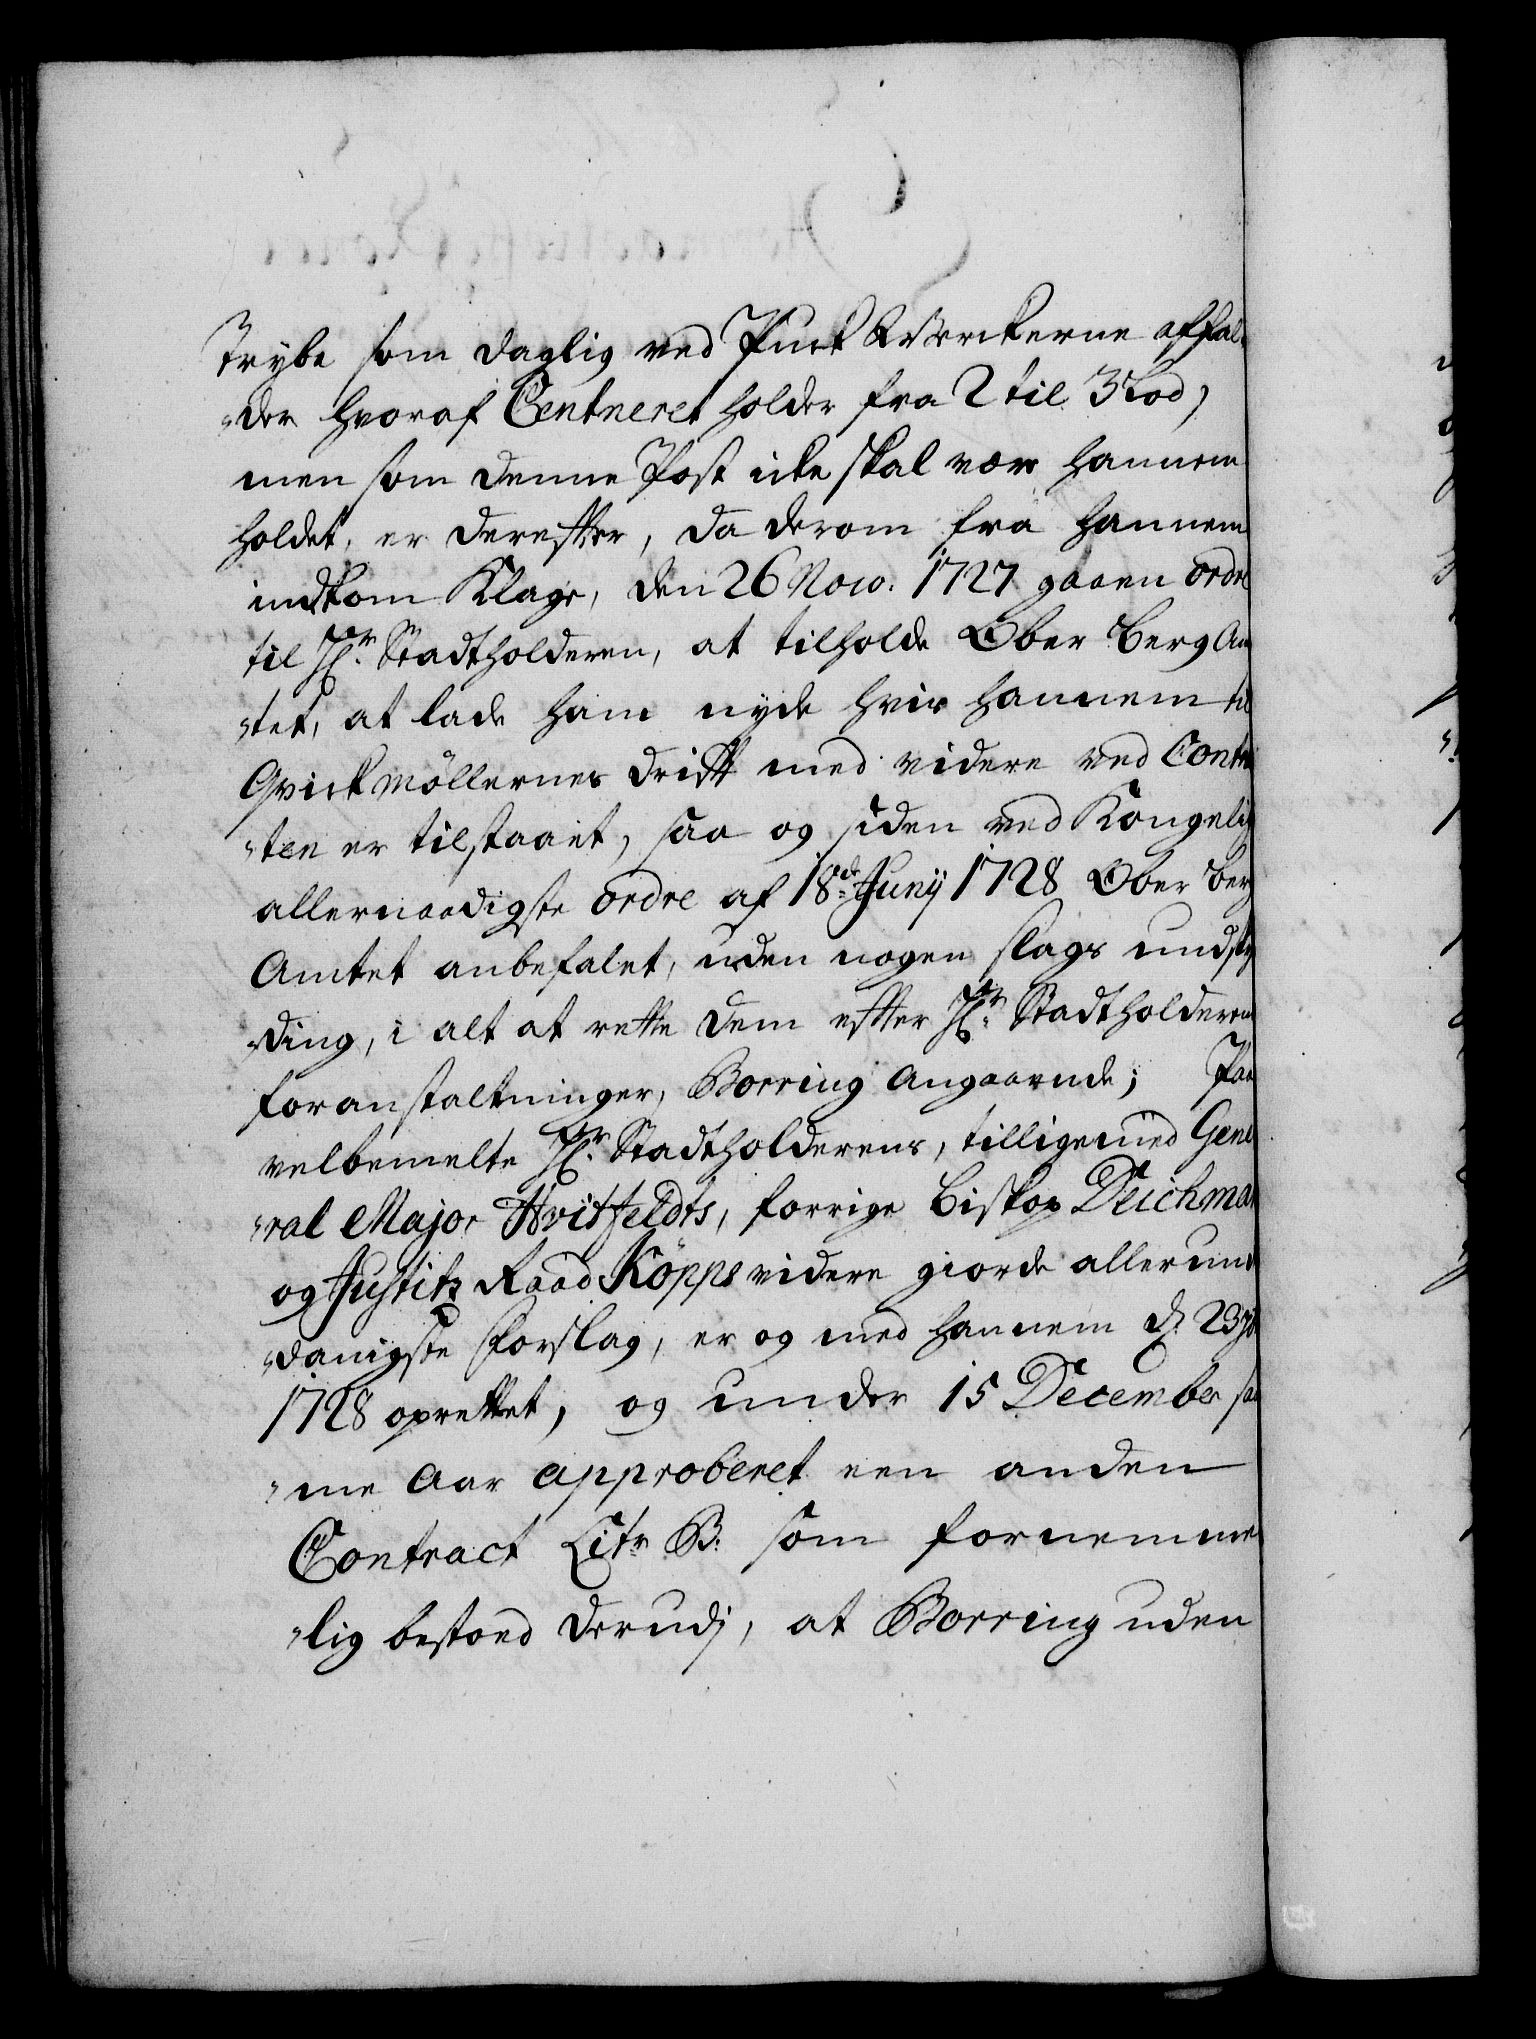 Trybe som daglig ved Puck Werckerne affal-
"der hvoraf Centneret holder fra 2 til 3 Lod,
men som denne Post icke skal være hannem
holdet, er derefter, da derom fra hannem
indkom Klage, den 26 Nov. 1727 gaaen ordre
til Hr. Stadtholderen, at tilholde Ober Berg Am
"tet, at lade ham nyde hvis hannem til
Qvickmöllernes drifft med videre ved Contra
"ten er tilstaaet, saa og siden ved Kongelig
allernaadigste ordre af 18de Junij 1728 Ober Berg
Amtet anbefalet, uden nogen slags undskyl
"ding, i alt at rette dem effter Hr. Stadtholderens
foranstaltninger, Borring angaaende; Paa
velbemelte Hr. Stadtholderens, tilligemed Gene
"ral Major Hvitfeldts, forrige Biskop Deichmans
og Justitz Raad Köpps videre giorde allerun
"danigste forslag, er og med hannem d. 23
1728 oprettet, og under 15 December sam
"me Aar approberet een anden
Contract Litr. B. som fornemme
"lig bestoed derudj, at Borring uden